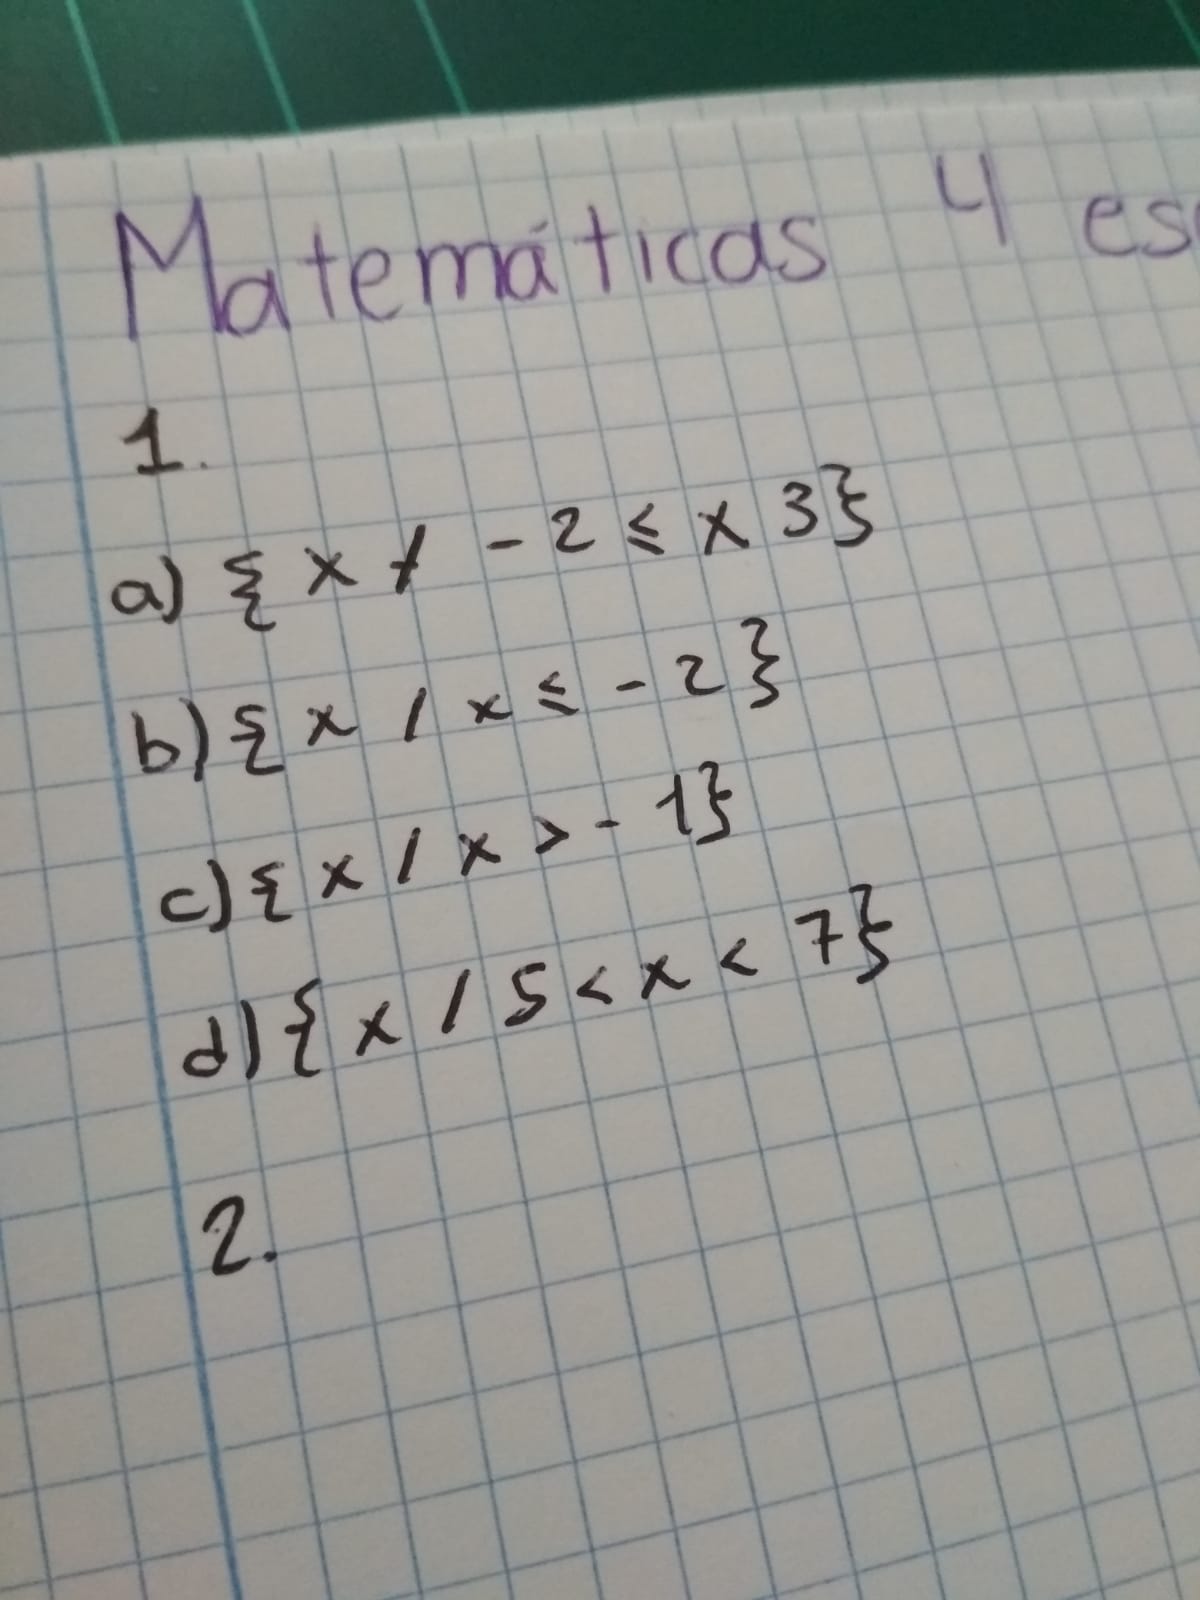 Matemáticas 4 es
1.
a) {x / -2 ≤ x 3}
b) {x / x ≤ -2}
c) {x / x > -1}
d) {x / 5 < x < 7}
2.